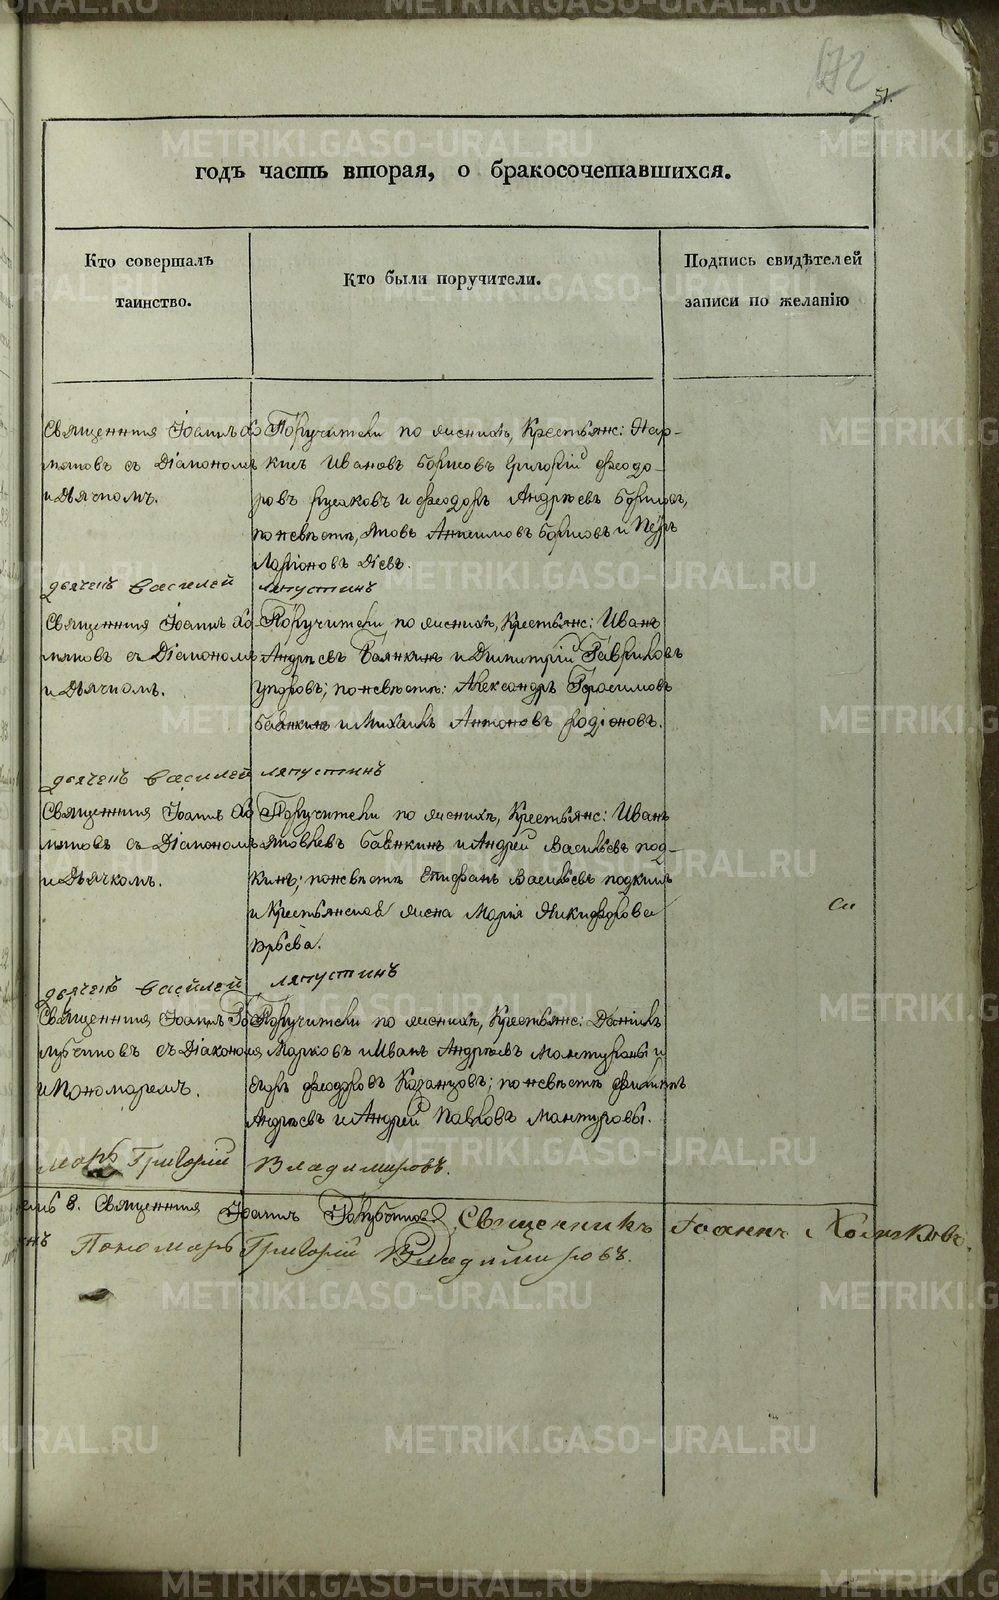 172
51.
годъ часть вторая, о бракосочетавшихся.
Кто совершалъ
таинство.
Кто были поручители.
Подпись свидѣтелей
записи по желанію
Священникъ Іоаннъ Хо-
мяковъ съ Діакономъ
и Дьячкомъ.
Поручители по женихѣ, Крестьяне: Нар-
кисъ Ивановъ Борисовъ Григорій Феодо-
ровъ Русаковъ и Феодоръ Андреевъ Борисовъ,
по невѣстѣ, Яковъ Борисовъ и Петръ
Ларіоновъ
дьячекъ Василей Ляпустинъ
Священникъ Іоаннъ Хо-
мяковъ съ Діакономъ
и Дьячкомъ.
Поручители по женихѣ, Крестьяне: Иванъ
Андреевъ Баянкинъ и Димитрій Гавриловъ
по невѣстѣ: Александръ Герасимовъ
и Михаилъ Антоновъ Родіоновъ.
дьячекъ Василей Ляпустинъ
Священникъ Іоаннъ Хо-
мяковъ съ Діакономъ
и Дьячкомъ.
Поручители по женихѣ, Крестьяне: Иванъ
Яковлевъ и Андрей Васильевъ под-
кинъ; по невѣстѣ Епифанъ Васильевъ подкинъ
и Крестьянская жена Марія Никифорова
дьячекъ Василей Ляпустинъ
Священникъ Іоаннъ Го-
лубчиковъ съ Діакономъ
и Пономаремъ.
Поручители по женихѣ, Крестьяне: Даніилъ
Марковъ и Иванъ Андреевъ Мантуровы и
Егоръ Феодоровъ Казанцовъ; по невѣстѣ Филиппъ
Андреевъ и Андрей Павловъ Мантуровы.
Григорій Владимировъ.
8. Священникъ Іоаннъ Священникъ Іоаннъ Хомяковъ.
Пономарь Григорій Владимировъ.
METRIKI.GASO-URAL.RU